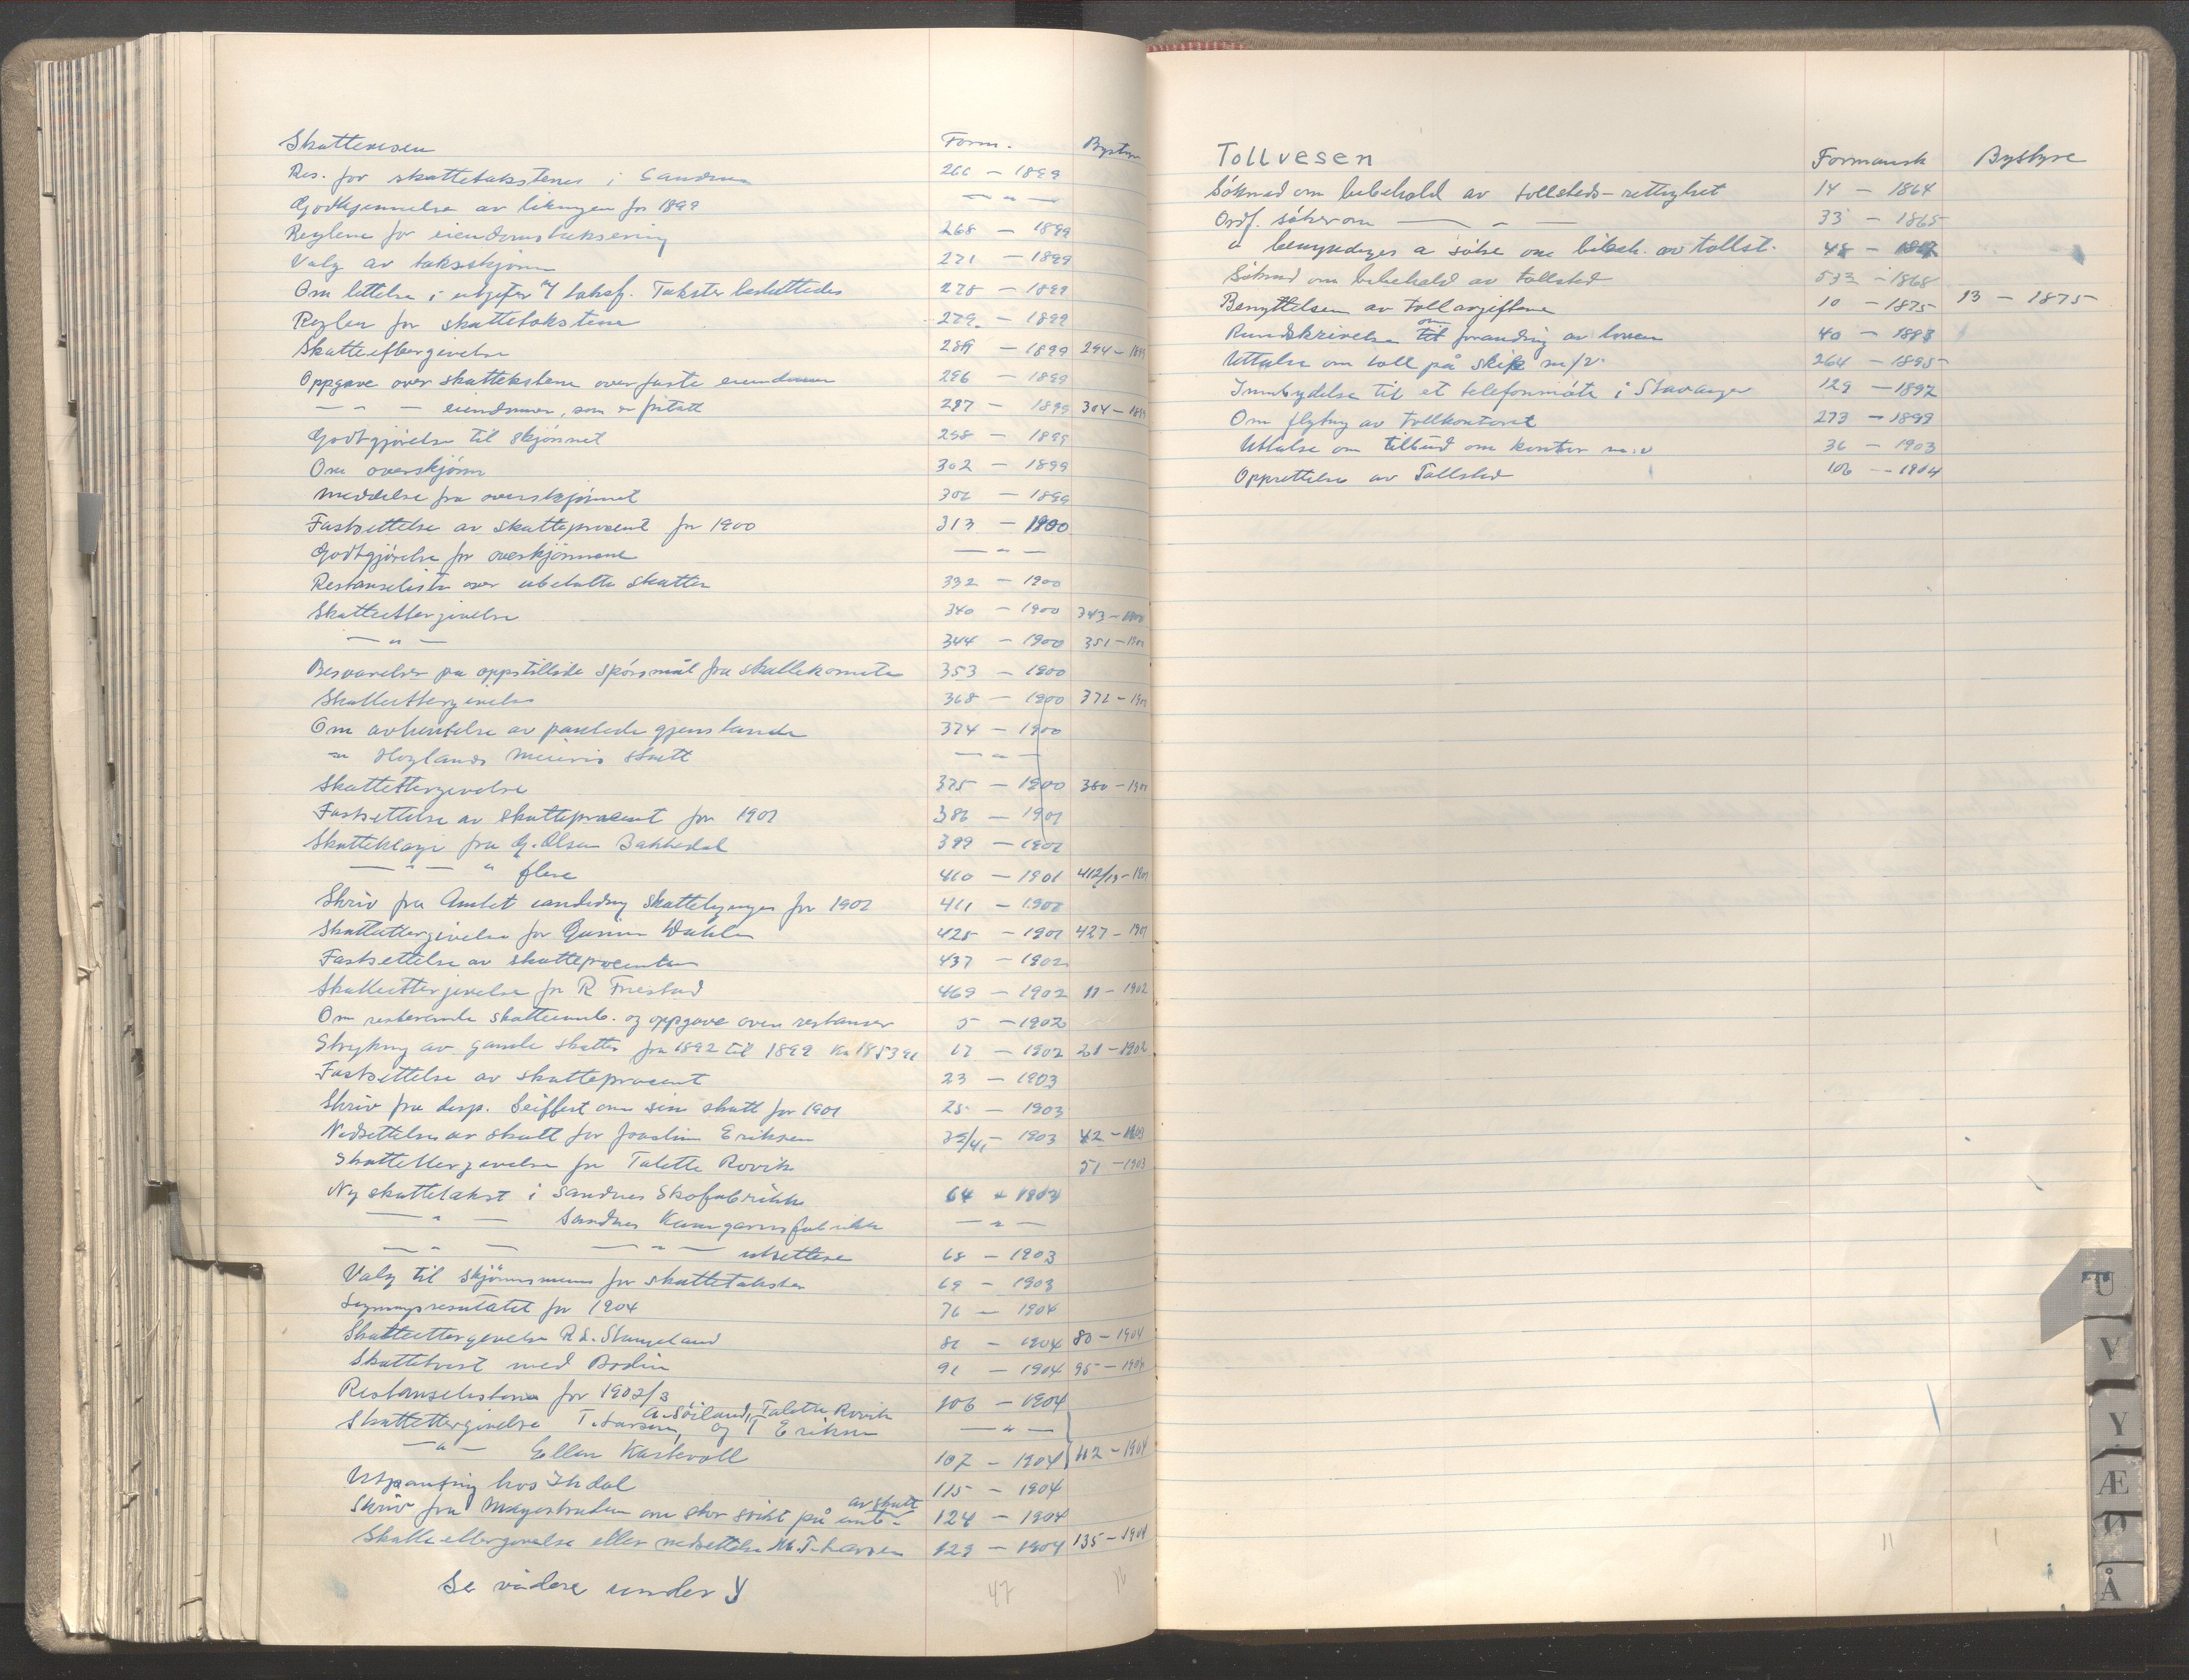 Skattevesen Form. Bystyre
Res. for skattetakstene i Sandnes 266 — 1899
Godkjennelse av likningen for 1899 — " —
Reglene for eiendomstaksering 268 — 1899
Valg av takstskjønn 271 — 1899
Om lettelse i utgifter takstf. Takster besluttedes 278 — 1899
Regler for skattetakstene 279 — 1899
Skatteeftergivelse 289 — 1899 294 — 1899
Oppgave over skattetakstene over faste eiendommer 296 — 1899
— " — eiendommer, som er fritatt 297 — 1899 304 — 1899
Godtgjörelse til skjönnet 298 — 1899
Om overskjönn 302 — 1899
Meddelse fra overskjönnet 306 — 1899
Fastsettelse av skatteprosent for 1900 313 — 1900
Godtgjörelse for overskjönnene — " —
Restanseliste over ubetalte skatter 332 — 1900
Skatteettergivelse 340 — 1900 343 — 1900
— " — 344 — 1900 351 — 1900
Besvarelse på oppstillede spörsmål fra skattekomite 353 — 1900
Skatteettergivelse 368 — 1900 372 — 1900
Om avhentelse av pantede gjenstande 374 — 1900
" Höylands Meieris skatt — " —
Skatteettergivelse 375 — 1900 380 — 1900
Fastsettelse av skatteprosent for 1901 386 — 1901
Skatteklage fra G. Olsen Bakkedal 399 — 1901
— " — " flere 410 — 1901 412/13 — 1901
Skriv fra Amtet skattelign for 1901 411 — 1901
Skatteettergivelse for Gunnar 425 — 1901 427 — 1901
Fastsettelse av skatteprosenten 437 — 1902
Skatteettergivelse for R Frestad 469 — 1902 11 — 1902
Om resterende skatteinnb. og oppgave over restanser 5 — 1902
Strykning av gamle skatter fra 1892 til 1899 17 — 1902 21 — 1902
Fastsettelse av skatteprosent 23 — 1903
Skriv fra disp. Seiffert om sin skatt for 1901 25 — 1903
Nedsettelse av skatt for Joachim Eriksen 39/41 — 1903 42 — 1903
Skatteettergivelse for Talette Rovik 51 — 1903
Ny skattetakst i Sandnes Skofabrikk 64 — 1903
— " — Sandnes Kamgarnsfabrikk — " —
— " — — " — utsettese 68 — 1903
Valg til skjönnsmenn for skattetakster 69 — 1903
Ligningsresultatet for 1904 76 — 1904
Skatteettergivelse R S. Stangeland 80 — 1904
Skattetvist med Bodin 91 — 1904 95 — 1904
Restanselistene for 1902/3 106 — 1904
A. Söiland, Talette Rovik
Skatteettergivelse T. Larsen, og T Eriksen — " —
— " — Ellen Kartevoll 107 — 1904 112 — 1904
Utpanting hos Ihdal 115 — 1904
av skatt
Skriv fra Magistraden om stor svikt på innb. 124 — 1904
Skatteettergivelse eller nedsettelse M. T. Larsen 129 — 1904 135 — 1904
Se videre under Y
47 16
Tollvesen Formansk Bystyre
Söknad om bibehold av tollsteds-rettighet 14 — 1864
Ordf. söker om — " — 33 — 1865
" bemyndiges a söke om bibeh. av tollst. 48 — 1867
Söknad om bibehold av tollsted 533 — 1868
Benyttelsen av tollavgiftene 10 — 1875 13 — 1875
om
Rundskrivelse til forandring av loven 40 — 1883
Uttalse om toll på skip m/v. 264 — 1895
Innbydelse til et telefonmöte i Stavanger 129 — 1897
Om flytning av tollkontoret 273 — 1899
Uttalse om tilbud om kontor m.v 36 — 1903
Opprettelse av Tollsted 106 — 1904
11 1
U
V
Y
Æ
Ø
Å